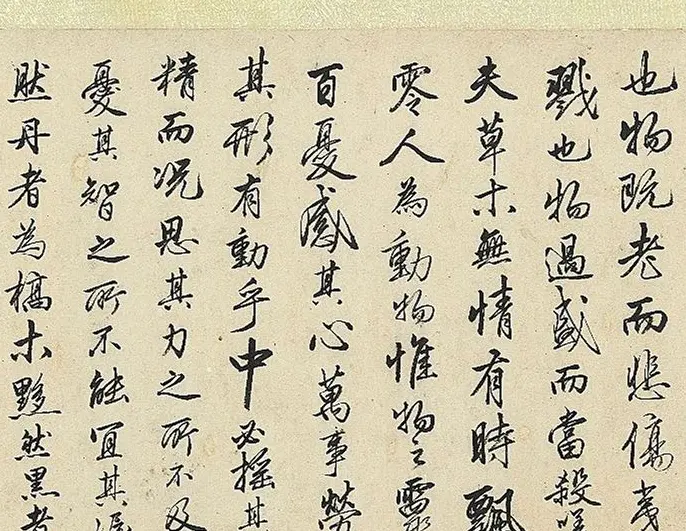 也物既老而悲傷夷
戮也物過盛而當殺
夫草木無情有時飄
零人為動物惟物之靈
百憂感其心萬事勞
其形有動乎中必搖其
精而況思其力之所不及
憂其智之所不能宜其渥
然丹者為槁木黟然黑者